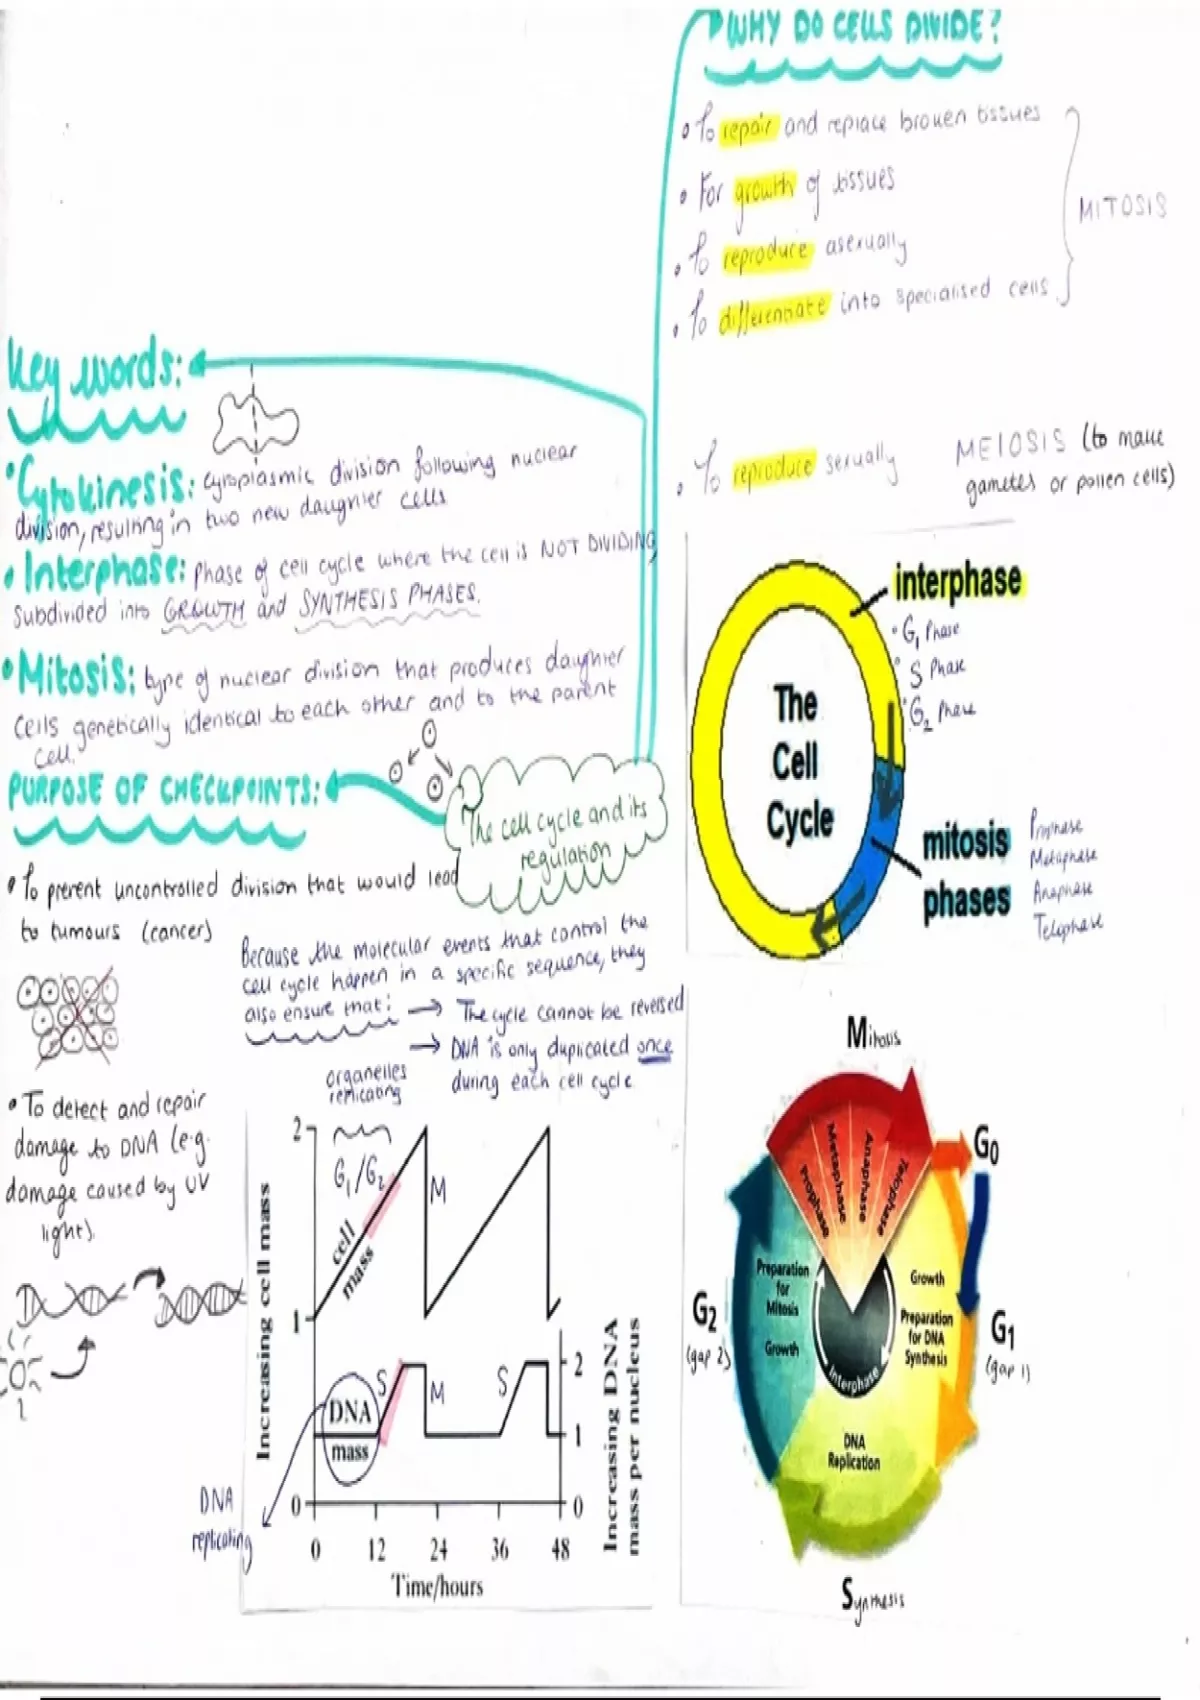 WHY DO CELLS DIVIDE?
• To repair and replace broken tissues
• For growth of tissues
• To reproduce asexually
• To differentiate into specialised cells
MITOSIS
• To reproduce sexually
MEIOSIS (to make
gametes or pollen cells)
Key words:
• Cytokinesis: cytoplasmic division following nuclear
division, resulting in two new daughter cells
• Interphase: phase of cell cycle where the cell is NOT DIVIDING
Subdivided into GROWTH and SYNTHESIS PHASES.
• Mitosis: type of nuclear division that produces daughter
cells genetically identical to each other and to the parent
cell.
The cell cycle and its
regulation
PURPOSE OF CHECKPOINTS:
• To prevent uncontrolled division that would lead
to tumours (cancer)
Because the molecular events that control the
cell cycle happen in a specific sequence, they
also ensure that: → The cycle cannot be reversed
→ DNA is only duplicated once
during each cell cycle
• To detect and repair
damage to DNA (e.g.
damage caused by UV
light).
organelles
replicating
G1/G2
cell
mass
M
S
M
S
DNA
mass
DNA
replicating
Increasing cell mass
2
1
0
2
1
0
Increasing DNA
mass per nucleus
0 12 24 36 48
Time/hours
The
Cell
Cycle
interphase
• G1 Phase
• S Phase
• G2 Phase
mitosis
phases
Prophase
Metaphase
Anaphase
Telophase
Mitosis
Prophase
Metaphase
Anaphase
Telophase
G0
G1
(gap 1)
G2
(gap 2)
Preparation
for
Mitosis
Growth
Growth
Preparation
for DNA
Synthesis
Interphase
DNA
Replication
Synthesis